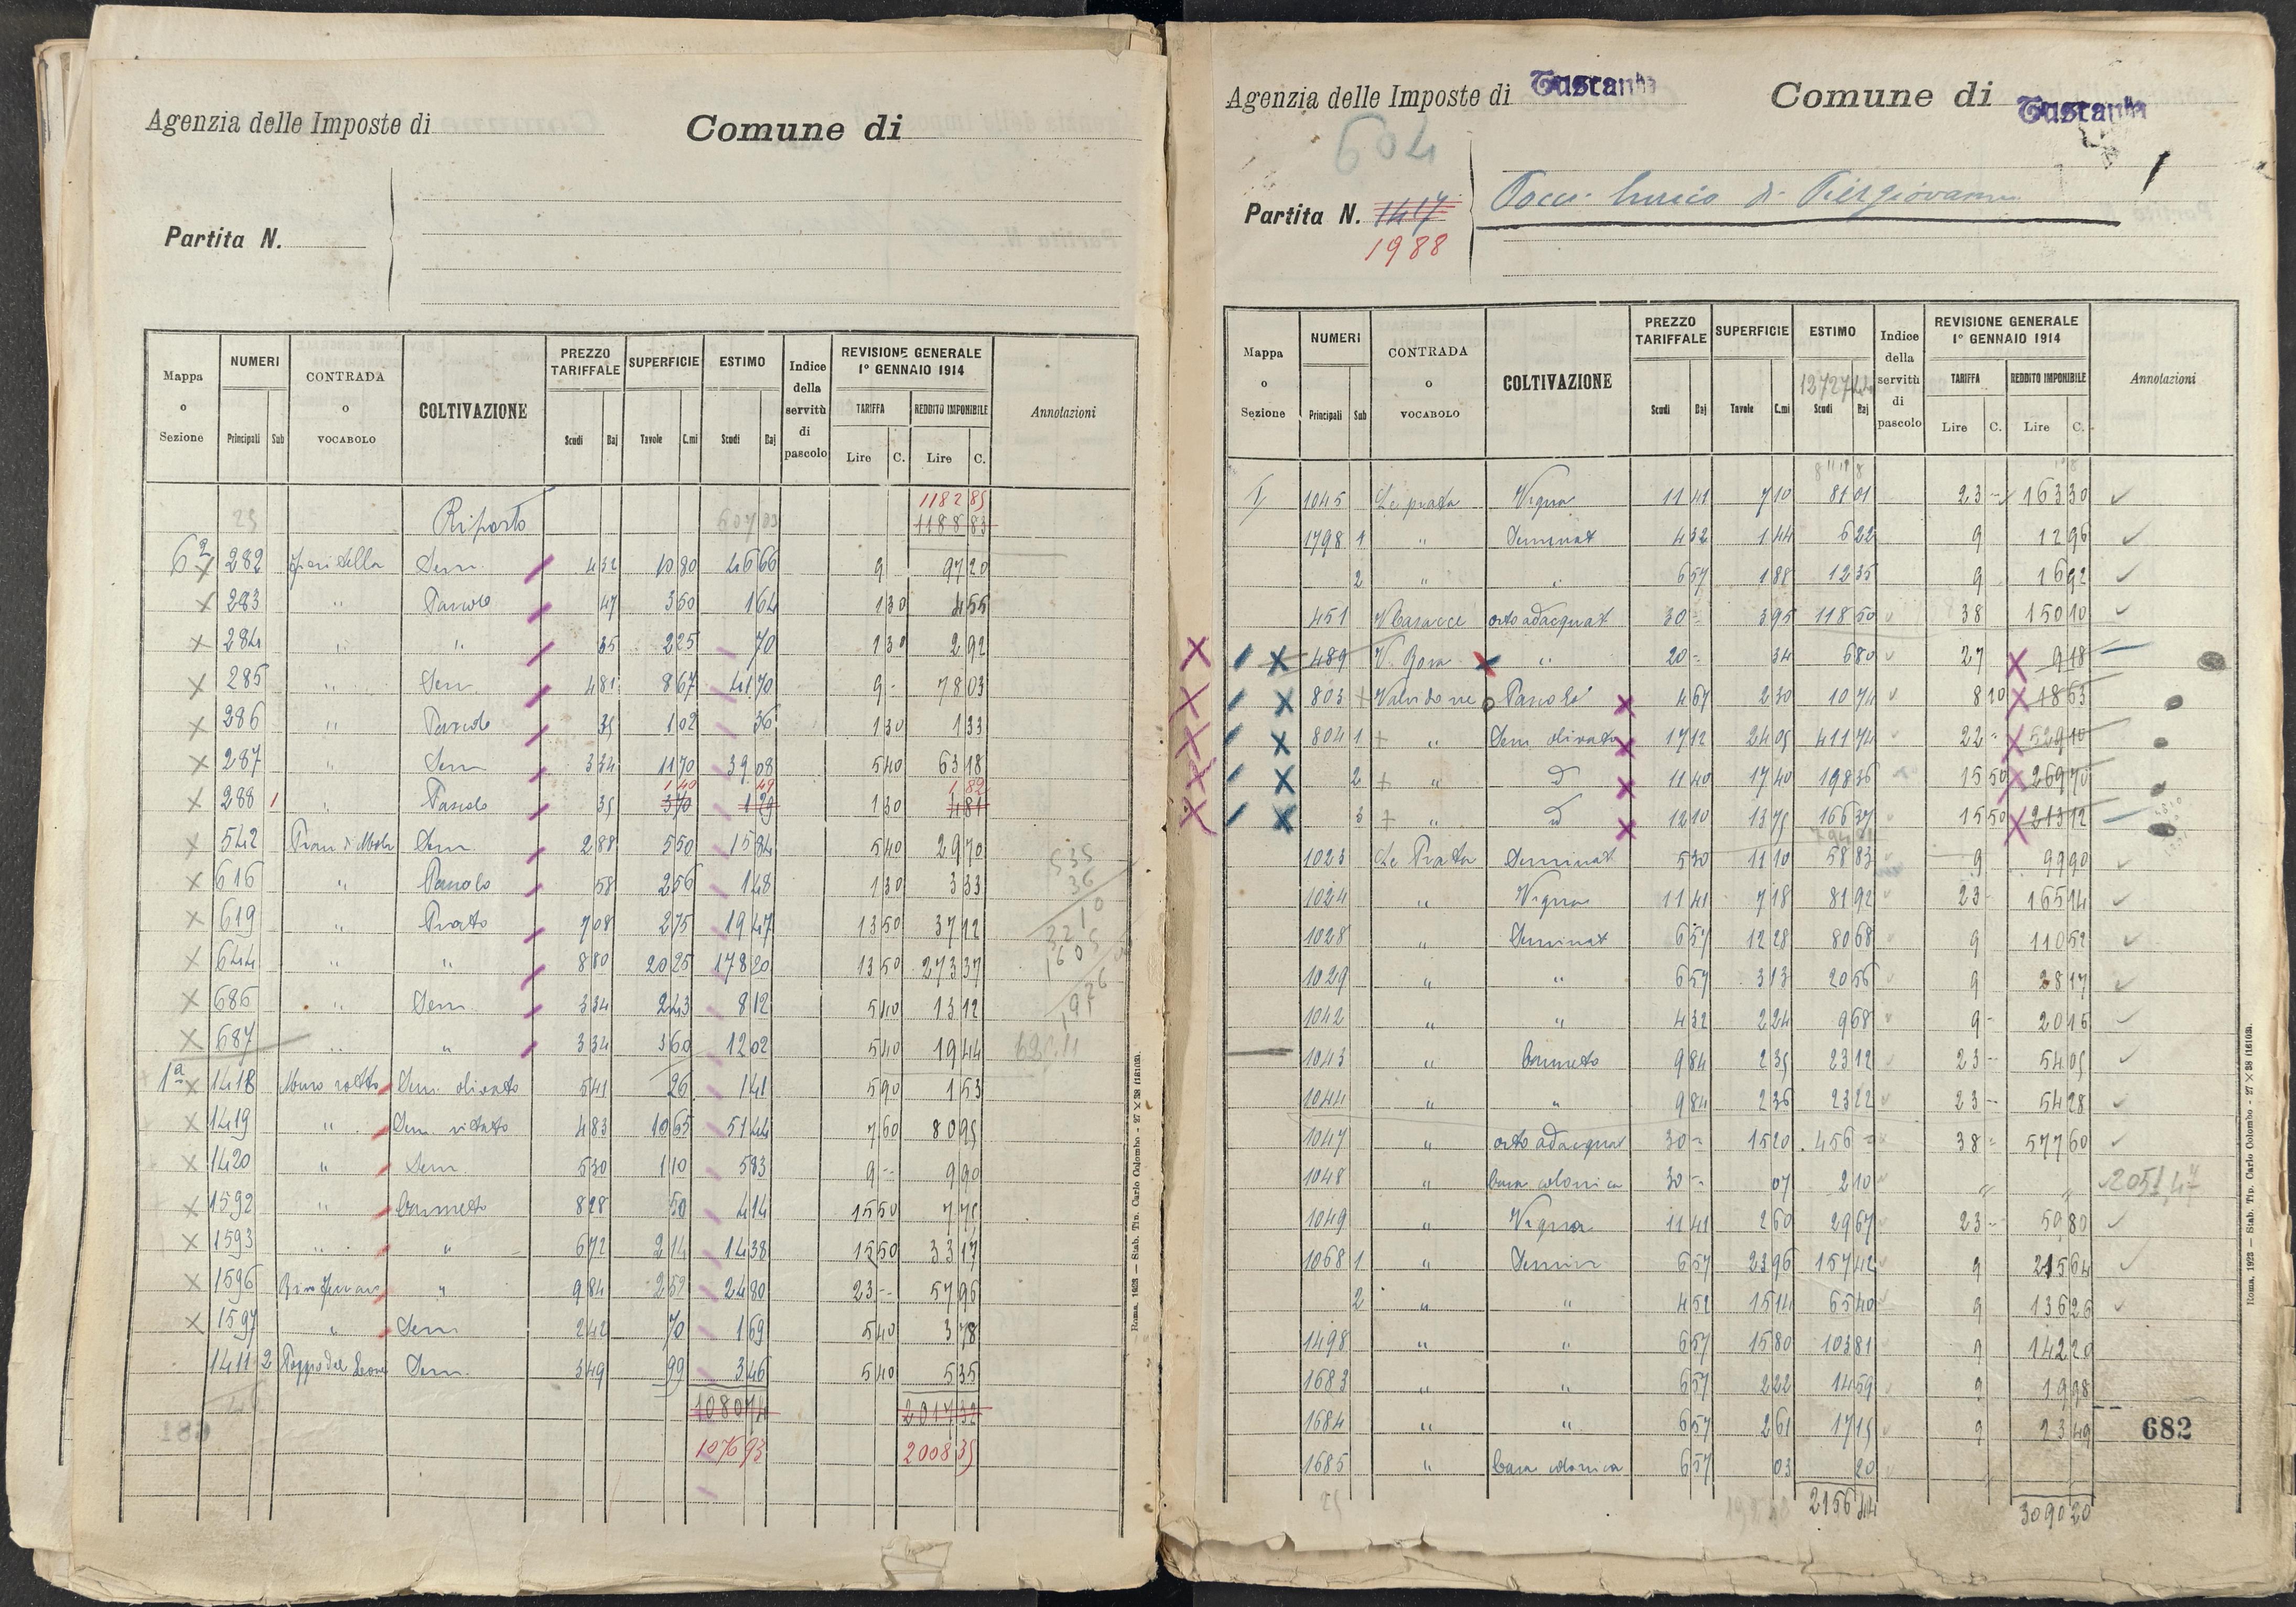 Agenzia delle Imposte di
Comune di
Partita N.
Mappa o Sezione | NUMERI Principali Sub | CONTRADA O VOCABOLO | COLTIVAZIONE | PREZZO TARIFFALE Scudi Baj | SUPERFICIE Tavole C.mi | ESTIMO Scudi Baj | Indice della servitù di pascolo | REVISIONE GENERALE 1° GENNAIO 1914 TARIFFA Lire C. REDDITO IMPONIBILE Lire C. | Annotazioni
1182 85
25 Riporto 607 33 1188 83
6ª 282 Sem. 4 32 10 80 46 66 9 97 20
283 " Pascolo 47 3 50 1 64 1 30 4 55
284 " " 35 2 25 70 1 30 2 92
285 " Sem. 4 81 8 67 41 70 9 - 78 03
286 " Pascolo 35 1 02 36 1 30 1 33
287 " Sem 3 34 11 70 39 08 5 40 63 18
1 40 49 1 82
288 1 " Pascolo 35 3 70 1 29 1 30 4 81
542 Pian di Mola Sem. 2 88 5 50 15 84 5 40 29 70
616 " Pascolo 58 2 56 1 48 1 30 3 33
619 " Prato 7 08 2 75 19 47 13 50 37 12
644 " " 8 80 20 25 178 20 13 50 273 37
686 " Sem. 3 34 2 43 8 12 5 40 13 12
687 " " 3 34 3 60 12 02 5 40 19 44
1ª 1418 Muro rotto Sem. olivato 5 41 26 1 41 5 90 1 53
1419 " Sem. vitato 4 83 10 65 51 44 7 60 80 95
1420 " Sem. 5 30 1 10 5 83 9 - 9 90
1592 " Canneto 8 28 50 4 14 15 50 7 75
1593 " " 6 72 2 14 14 38 15 50 33 17
1596 " 9 84 2 52 24 80 23 - 57 96
1597 " Sem 2 42 70 1 69 5 40 3 78
1411 2 Poggio del Leone Sem. 3 49 99 3 46 5 40 5 35
1080 74 2017 32
1076 93 2008 35
681
Roma, 1923 — Stab. Tip. Carlo Colombo - 27 × 38 (1610)
Agenzia delle Imposte di Tuscania
Comune di Tuscania
604
Partita N. 1417
1988
Tocci Lucio di Piergiovanni
Mappa o Sezione | NUMERI Principali Sub | CONTRADA O VOCABOLO | COLTIVAZIONE | PREZZO TARIFFALE Scudi Baj | SUPERFICIE Tavole C.mi | ESTIMO Scudi Baj | Indice della servitù di pascolo | REVISIONE GENERALE 1° GENNAIO 1914 TARIFFA Lire C. REDDITO IMPONIBILE Lire C. | Annotazioni
1 1045 Le prata Vigna 11 41 7 10 81 01 23 - 163 30
1798 1 " Seminat 4 32 1 44 6 22 9 12 96
2 " " 6 57 1 88 12 35 9 16 92
451 orto adacquat 30 - 3 95 118 50 38 150 10
489 " 20 - 34 6 80 27 9 18
803 Pascolo 4 67 2 30 10 74 8 10 18 63
804 1 " Sem olivato 17 12 24 05 411 74 22 - 529 10
2 " d 11 40 17 40 198 36 15 50 269 70
3 " d 12 10 13 75 166 37 15 50 213 12
1023 Le Prata Seminat 5 30 11 10 58 83 9 99 90
1024 " Vigna 11 41 7 18 81 92 23 - 165 14
1028 " Seminat 6 57 12 28 80 68 9 110 52
1029 " " 6 57 3 13 20 56 9 28 17
1042 " " 4 32 2 24 9 68 9 - 20 16
1043 " Canneto 9 84 2 35 23 12 23 - 54 05
1044 " " 9 84 2 36 23 22 23 - 54 28
1047 " orto adacquat 30 - 15 20 456 - 38 - 577 60
1048 " Casa colonica 30 - 07 2 10 " " 2051,47
1049 " Vigna 11 41 2 60 29 67 23 - 59 80
1068 1 " Semin 6 57 23 96 157 42 9 215 64
2 " " 4 32 15 14 65 40 9 136 26
1498 " " 6 57 15 80 103 81 9 142 20
1683 " " 6 57 2 22 14 59 9 19 98
1684 " " 6 57 2 61 17 15 9 23 49
1685 " Casa colonica 6 57 03 20
25 2156 44 3090 20
682
Roma, 1923 — Stab. Tip. Carlo Colombo - 27 × 38 (1610)